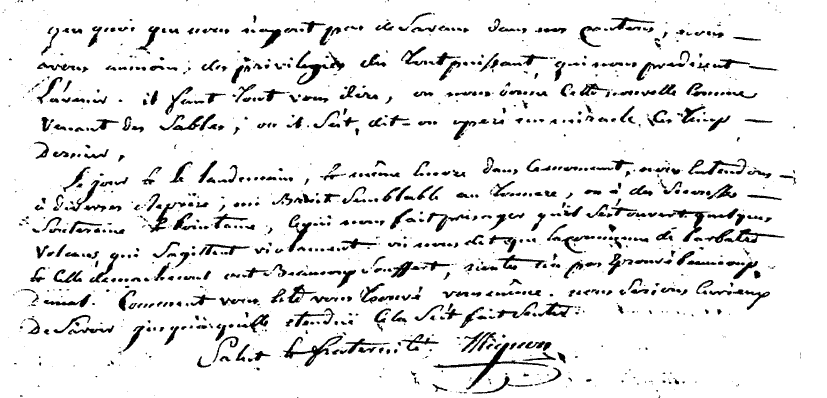 que quoi que nous n'ayont pas de Savans dans nos cantons, nous
avons aumoin, des privilegiés du Toutpuissant, qui nous predisent
L'avenir. il faut tout vous dire, on nous donne cette nouvelle comme
Venant des Sables, ou il S'est, dit-on operé un miracle ces Temps
Dernier,
Le jour et le Landemain, et même encore dans ce moment, nous entendons
à diverses reprise, un Bruit Semblable au Tonnere, ou à des Secousses
Souteraine et Lointaine, ce qui nous fait presager qu'il s'est ouvert quelques
Volcans, qui S'agittent violament on nous dit que la commune de barbatre
et celle de ont Beaucoup Souffert, nantes n'a pas Eprouvé beaucoup
Demal. Comment vous ete vous trouvé vous même. nous Serions Curieux
De Savoir jusqu'à quelle etendue Cela S'est fait Sentir.
Salut et fraternité Mignon